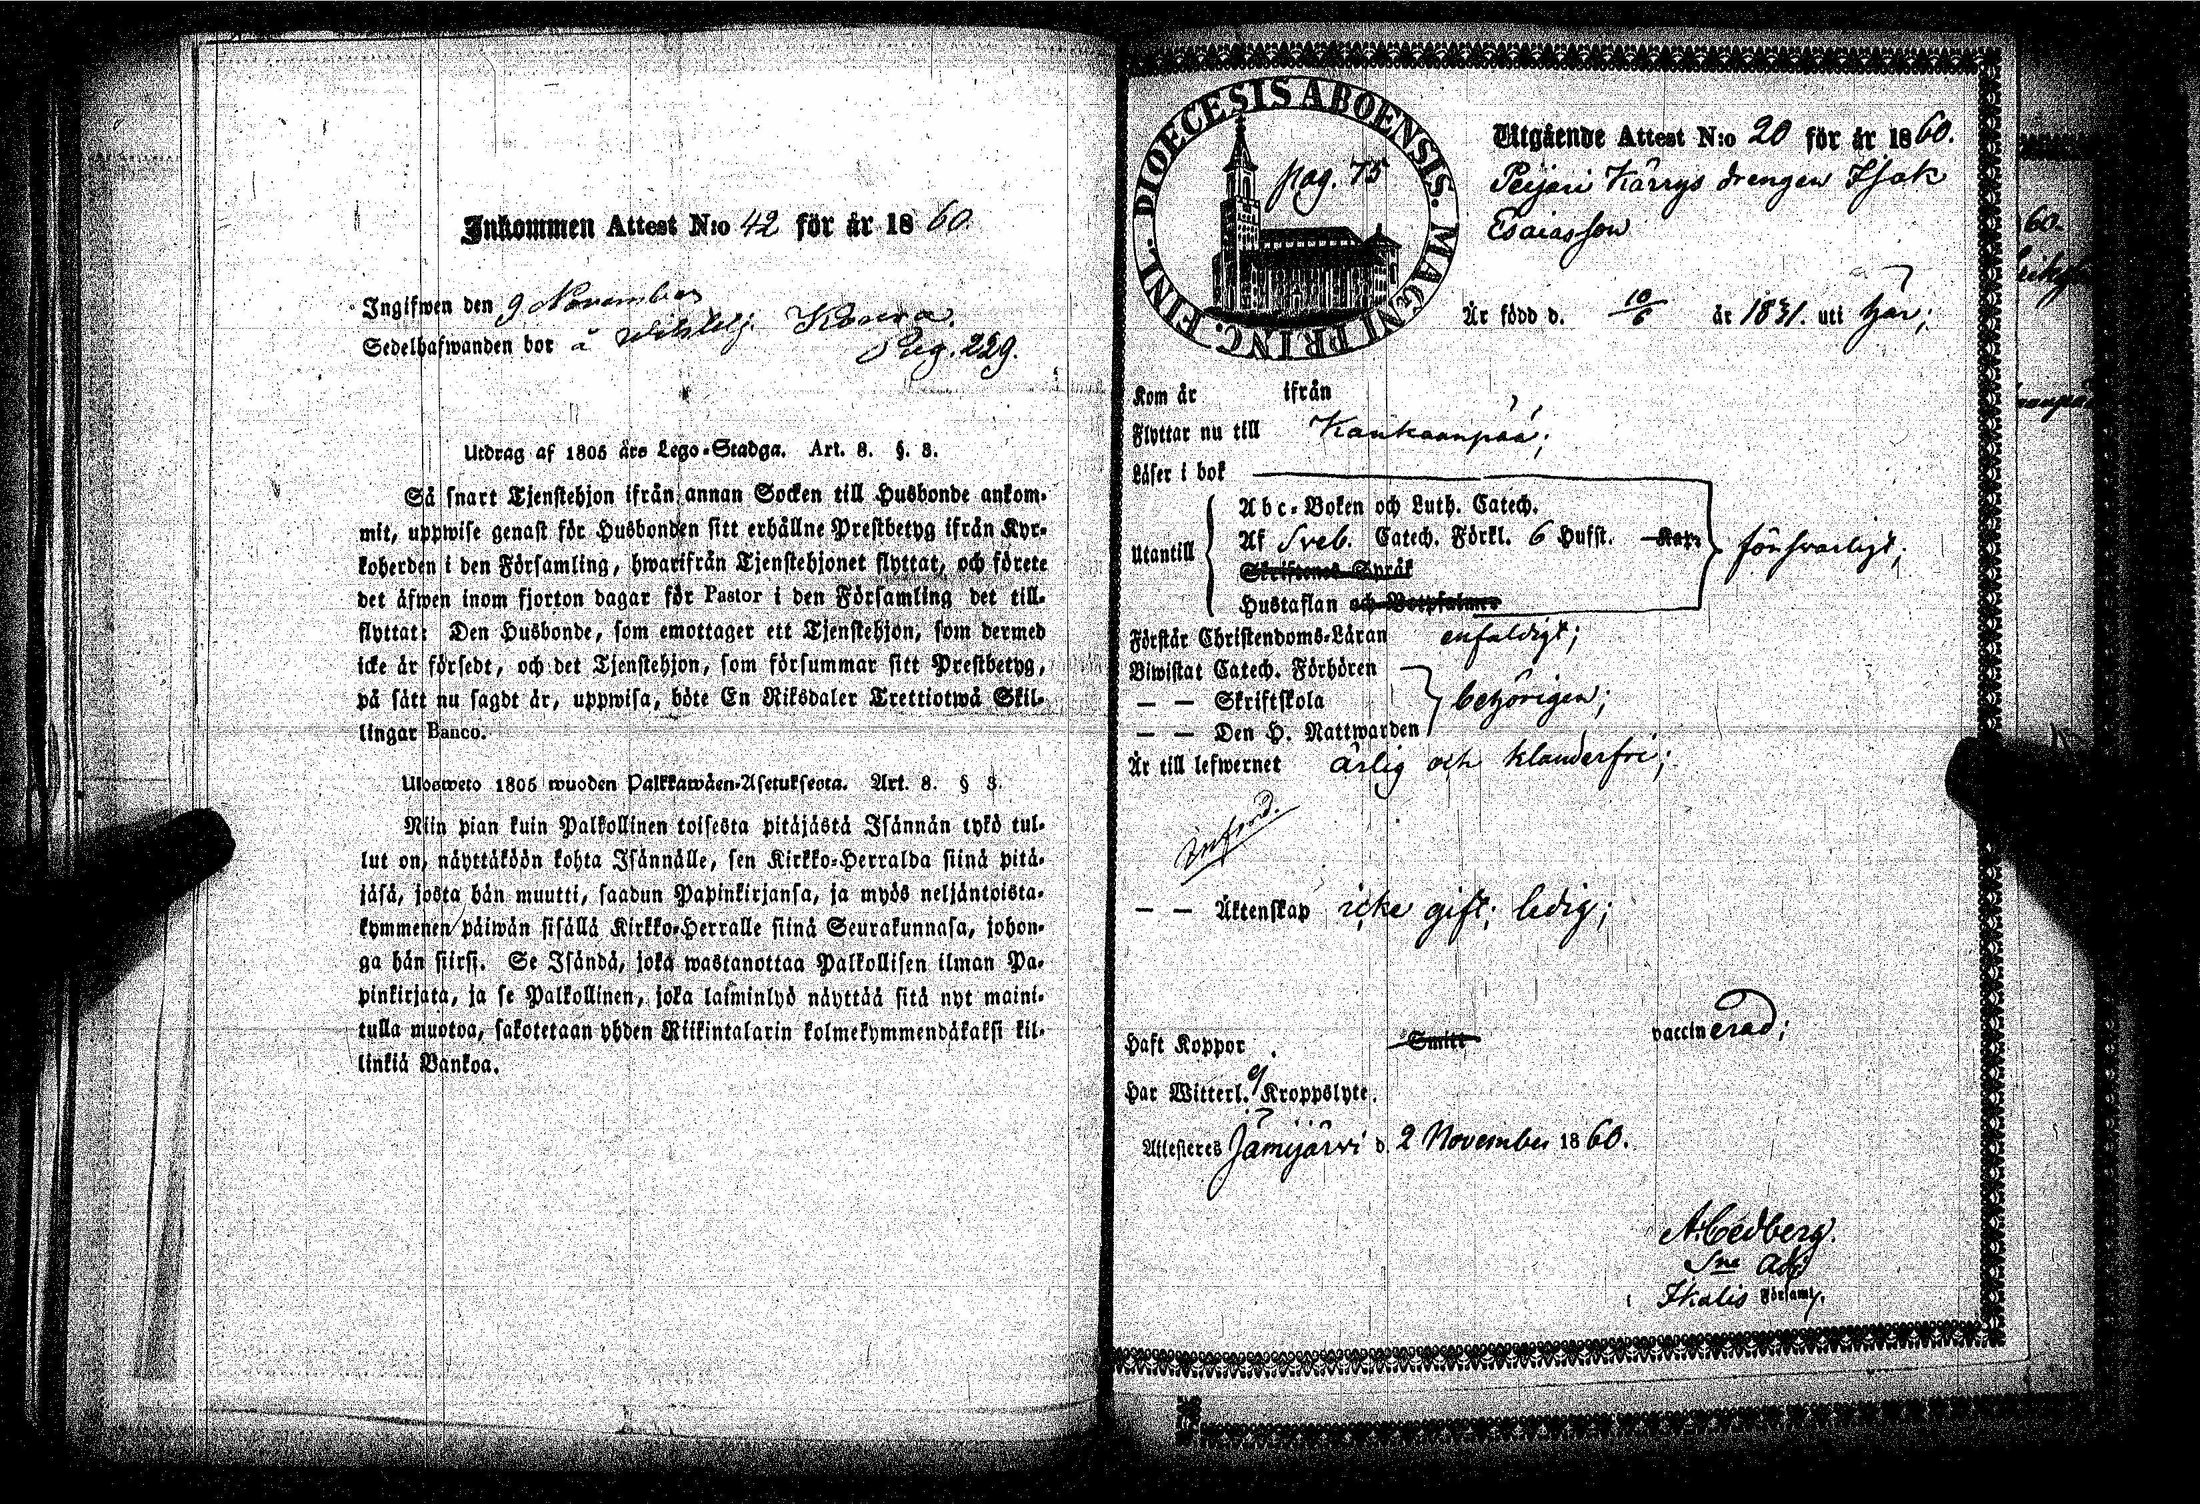 Inkommen Attest N:o 42 för år 1860.
Ingifwen den 9 November
Sedelhafwanden bor å
Pag. 229.
Utdrag af 1805 års Lego-Stadga. Art. 8. §. 3.
Så snart Tjenstehjon ifrån annan Socken till Husbonde ankom-
mit, uppwise genast för Husbonden sitt erhållne Prestbetyg ifrån Kyr-
koherden i den Församling, hwarifrån Tjenstehjonet flyttat, och förete
det äfwen inom fjorton dagar för Pastor i den Församling det till-
flyttat: Den Husbonde, som emottager ett Tjenstehjon, som dermed
icke är försedt, och det Tjenstehjon, som försummar sitt Prestbetyg,
på sätt nu sagdt är, uppwisa, böte En Riksdaler Trettiotwå Skil-
lingar Banco.
Ulosweto 1805 wuoden Palkkawäen-Asetuksesta. Art. 8. § 3.
Niin pian kuin Palkollinen toisesta pitäjästä Isännän tykö tul-
lut on, näyttäköön kohta Isännälle, sen Kirkko-Herralda siinä pitä-
jäsä, josta hän muutti, saadun Papinkirjansa, ja myös neljäntoista-
kymmenen päiwän sisällä Kirkko-Herralle siinä Seurakunnasa, johon-
ga hän siirsi. Se Isändä, joka wastanottaa Palkollisen ilman Pa-
pinkirjata, ja se Palkollinen, joka laiminlyö näyttää sitä nyt maini-
tulla muotoa, sakotetaan yhden Riikintalarin kolmekymmendäkaksi kil-
linkiä Bankoa.
DIOECESIS ABOENSIS. MAGNI PRINC. FINL.
pag. 75
Utgående Attest N:o 20 för år 1860.
Peijari Kärrys drengen Isak
Esaiasson
Är född d. 10/6 år 1831. uti här;
Kom år ifrån
Flyttar nu till Kankaanpää;
Läser i bok
Utantill
Abc-Boken och Luth. Catech.
Af Sveb. Catech. Förkl. 6 Hufst. Kap.
Skriftenes Språk
Hustaflan och Botpsalmer
försvarligt;
Förstår Christendoms-Läran enfaldigt;
Biwistat Catech. Förhören
— — Skriftskola
— — Den H. Nattwarden
behörigen;
Är till lefwernet ärlig och klanderfri;
införd.
— — Äktenskap icke gift; ledig;
Haft Koppor Smitt vaccinerad;
Har Witterl. ej Kroppslyte.
Attesteres Jämijärvi d. 2 November 1860.
A. Cedberg.
Sne Adj
i Ikalis Församl.